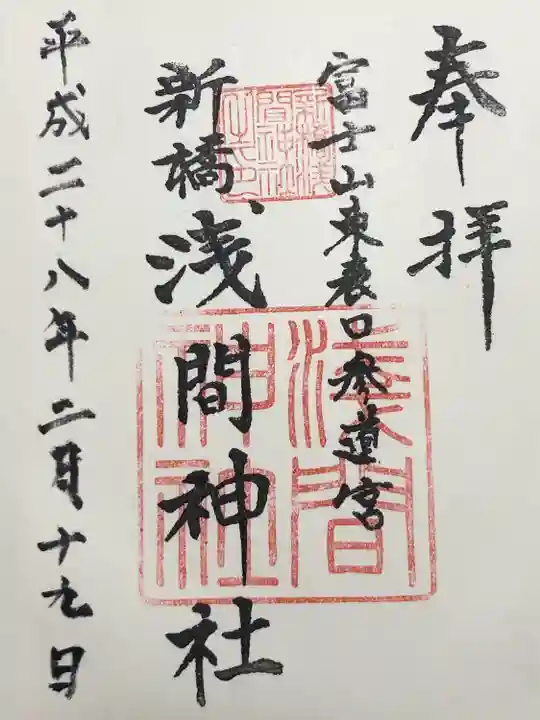 奉拝
富士山東表口参道宮
新橋浅間神社
平成二十八年二月十九日
浅間
神社